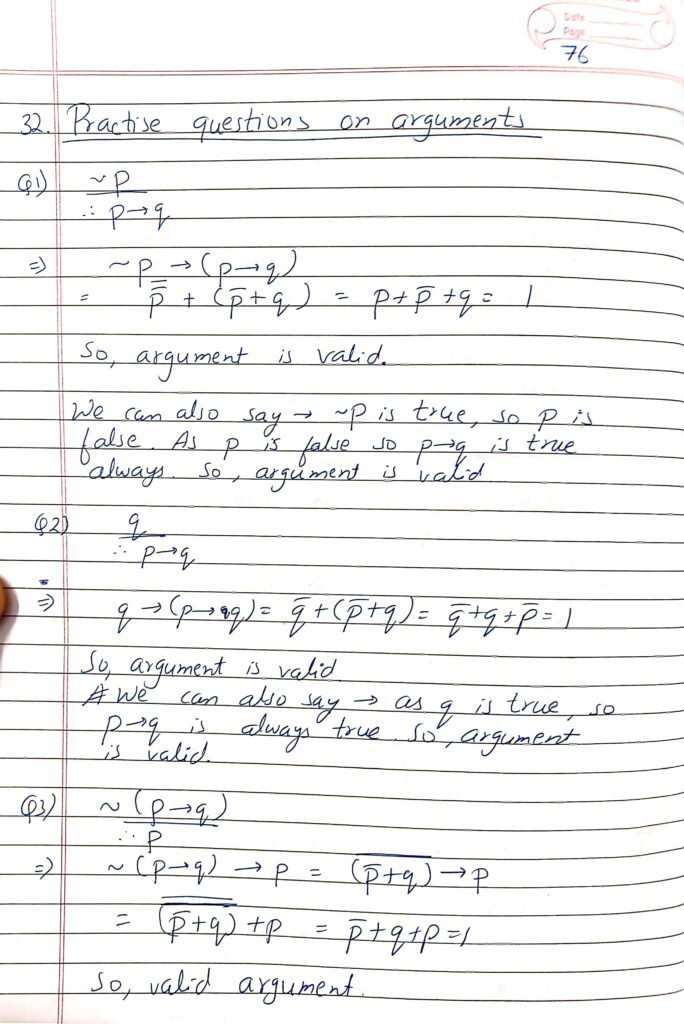 Date
Page
76
32. Practise questions on arguments
Q1) ~p
∴ p→q
⇒ ~p → (p→q)
= p̿ + (p̄+q) = p+p̄+q = 1
So, argument is valid.
We can also say → ~p is true, so p is
false. As p is false so p→q is true
always. So, argument is valid
Q2) q
∴ p→q
⇒ q → (p→q) = q̄+(p̄+q) = q̄+q+p̄=1
So, argument is valid
We can also say → as q is true, so
p→q is always true. So, argument
is valid.
Q3) ~(p→q)
∴ p
⇒ ~(p→q) → p = \overline{(p̄+q)} → p
= \overline{\overline{(p̄+q)}} + p = p̄+q+p=1
So, valid argument.